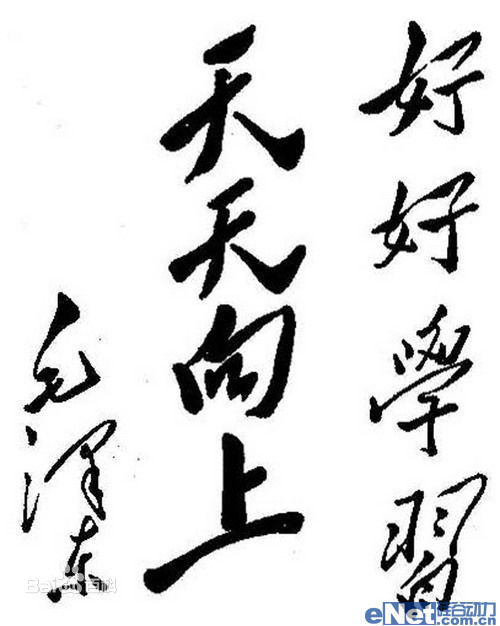 好好學習
天天向上
毛澤东
Baidu百科
eNet硅谷动力
.com.cn